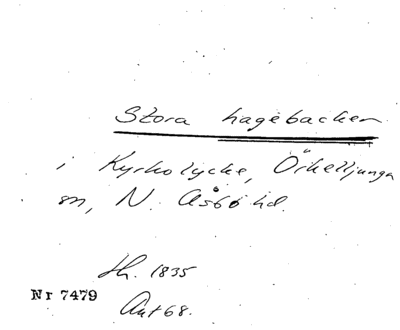 Stora hagebacken
i Kyrkolycke, Örkelljunga
sn, N. Åsbo hd.
Sh. 1835
Nr 7479
Akt 68.